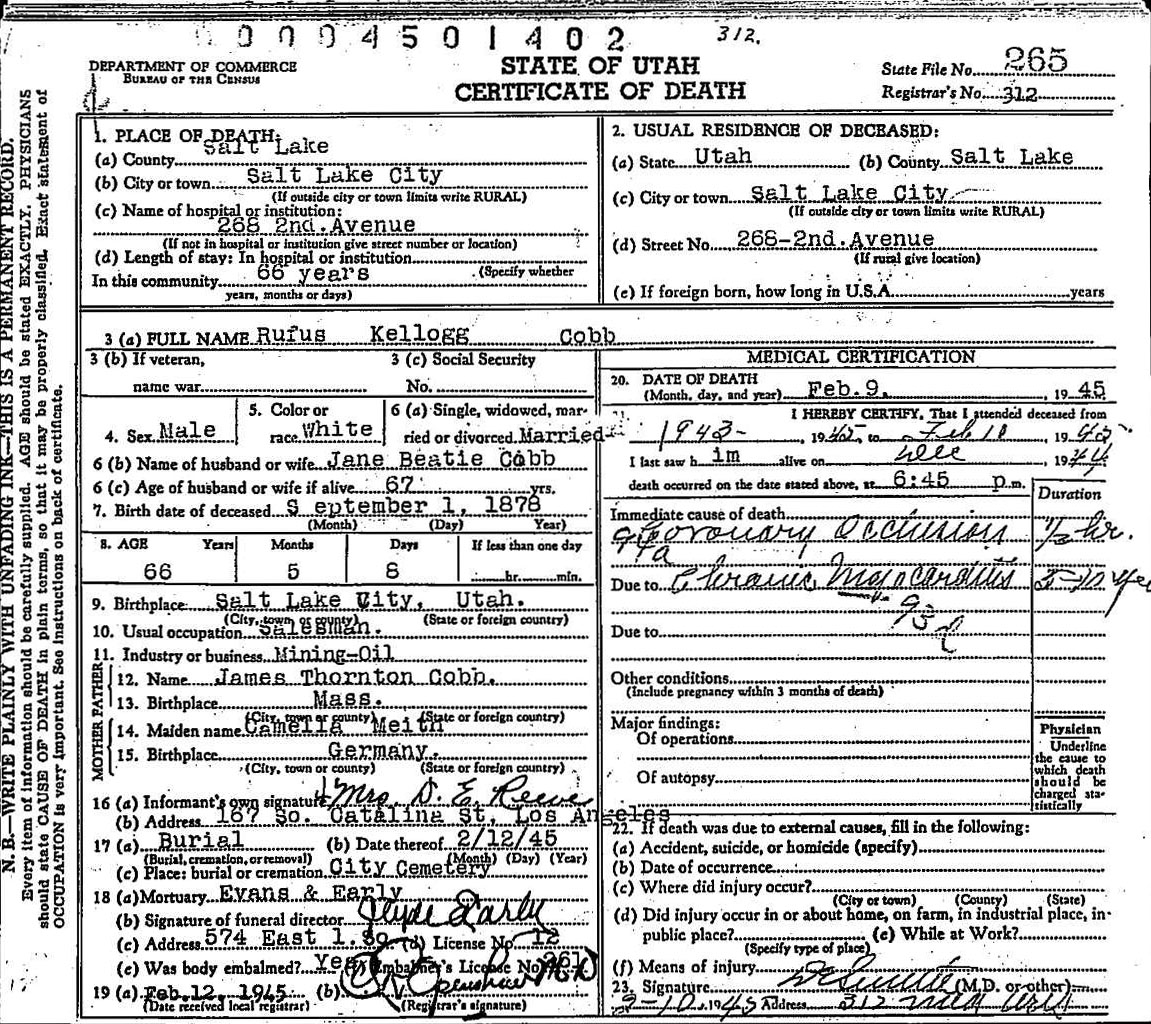 0004501402 312.
DEPARTMENT OF COMMERCE
BUREAU OF THE CENSUS
STATE OF UTAH
CERTIFICATE OF DEATH
State File No. 265
Registrar's No. 312
N. B.—WRITE PLAINLY WITH UNFADING INK—THIS IS A PERMANENT RECORD.
Every item of information should be carefully supplied. AGE should be stated EXACTLY. PHYSICIANS
should state CAUSE OF DEATH in plain terms, so that it may be properly classified. Exact statement of
OCCUPATION is very important. See instructions on back of certificate.
1. PLACE OF DEATH:
(a) County Salt Lake
(b) City or town Salt Lake City
(If outside city or town limits write RURAL)
(c) Name of hospital or institution:
268 2nd. Avenue
(If not in hospital or institution give street number or location)
(d) Length of stay: In hospital or institution
In this community 66 years (Specify whether
years, months or days)
2. USUAL RESIDENCE OF DECEASED:
(a) State Utah (b) County Salt Lake
(c) City or town Salt Lake City
(If outside city or town limits write RURAL)
(d) Street No. 268-2nd. Avenue
(If rural give location)
(e) If foreign born, how long in U.S.A. years
3 (a) FULL NAME Rufus Kellogg Cobb
3 (b) If veteran,
name war
3 (c) Social Security
No.
4. Sex Male
5. Color or
race White
6 (a) Single, widowed, mar-
ried or divorced Married
6 (b) Name of husband or wife Jane Beatie Cobb
6 (c) Age of husband or wife if alive 67 yrs.
7. Birth date of deceased September 1, 1878
(Month) (Day) Year)
8. AGE Years Months Days If less than one day
66 5 8 hr. min.
9. Birthplace Salt Lake City, Utah.
(City, town or county) (State or foreign country)
10. Usual occupation Salesman.
11. Industry or business Mining-Oil
FATHER
12. Name James Thornton Cobb.
13. Birthplace Mass.
(City, town or county) (State or foreign country)
MOTHER
14. Maiden name Camella Meith
15. Birthplace Germany.
(City, town or county) (State or foreign country)
16 (a) Informant's own signature Mrs. D. E. Reeve
(b) Address 167 So. Catalina St, Los Angeles
17 (a) Burial (b) Date thereof 2/12/45
(Burial, cremation, or removal) (Month) (Day) (Year)
(c) Place: burial or cremation City Cemetery
18 (a) Mortuary Evans & Early
(b) Signature of funeral director Clyde Early
(c) Address 574 East 1. So. (d) License No. 12
(e) Was body embalmed? Yes (f) Embalmer's License No. 261
19 (a) Feb.12, 1945 (b)
(Date received local registrar) (Registrar's signature)
MEDICAL CERTIFICATION
20. DATE OF DEATH
(Month, day, and year) Feb.9, 1945
21. I HEREBY CERTIFY, That I attended deceased from
1943-, 1945, to Feb 10 1945
I last saw him alive on Dec 1944
death occurred on the date stated above, at 6:45 p.m.
Duration
Immediate cause of death
Coronary Occlusion 1/2 hr.
94a
Due to Chronic Myocarditis
93d
Due to
Other conditions
(Include pregnancy within 3 months of death)
Major findings:
Of operations
Of autopsy
Physician
Underline
the cause to
which death
should be
charged sta-
tistically
22. If death was due to external causes, fill in the following:
(a) Accident, suicide, or homicide (specify)
(b) Date of occurrence
(c) Where did injury occur?
(City or town) (County) (State)
(d) Did injury occur in or about home, on farm, in industrial place, in
public place? (e) While at Work?
(Specify type of place)
(f) Means of injury
23. Signature (M.D. or other)
2-10 1945 Address 312 Med Arts